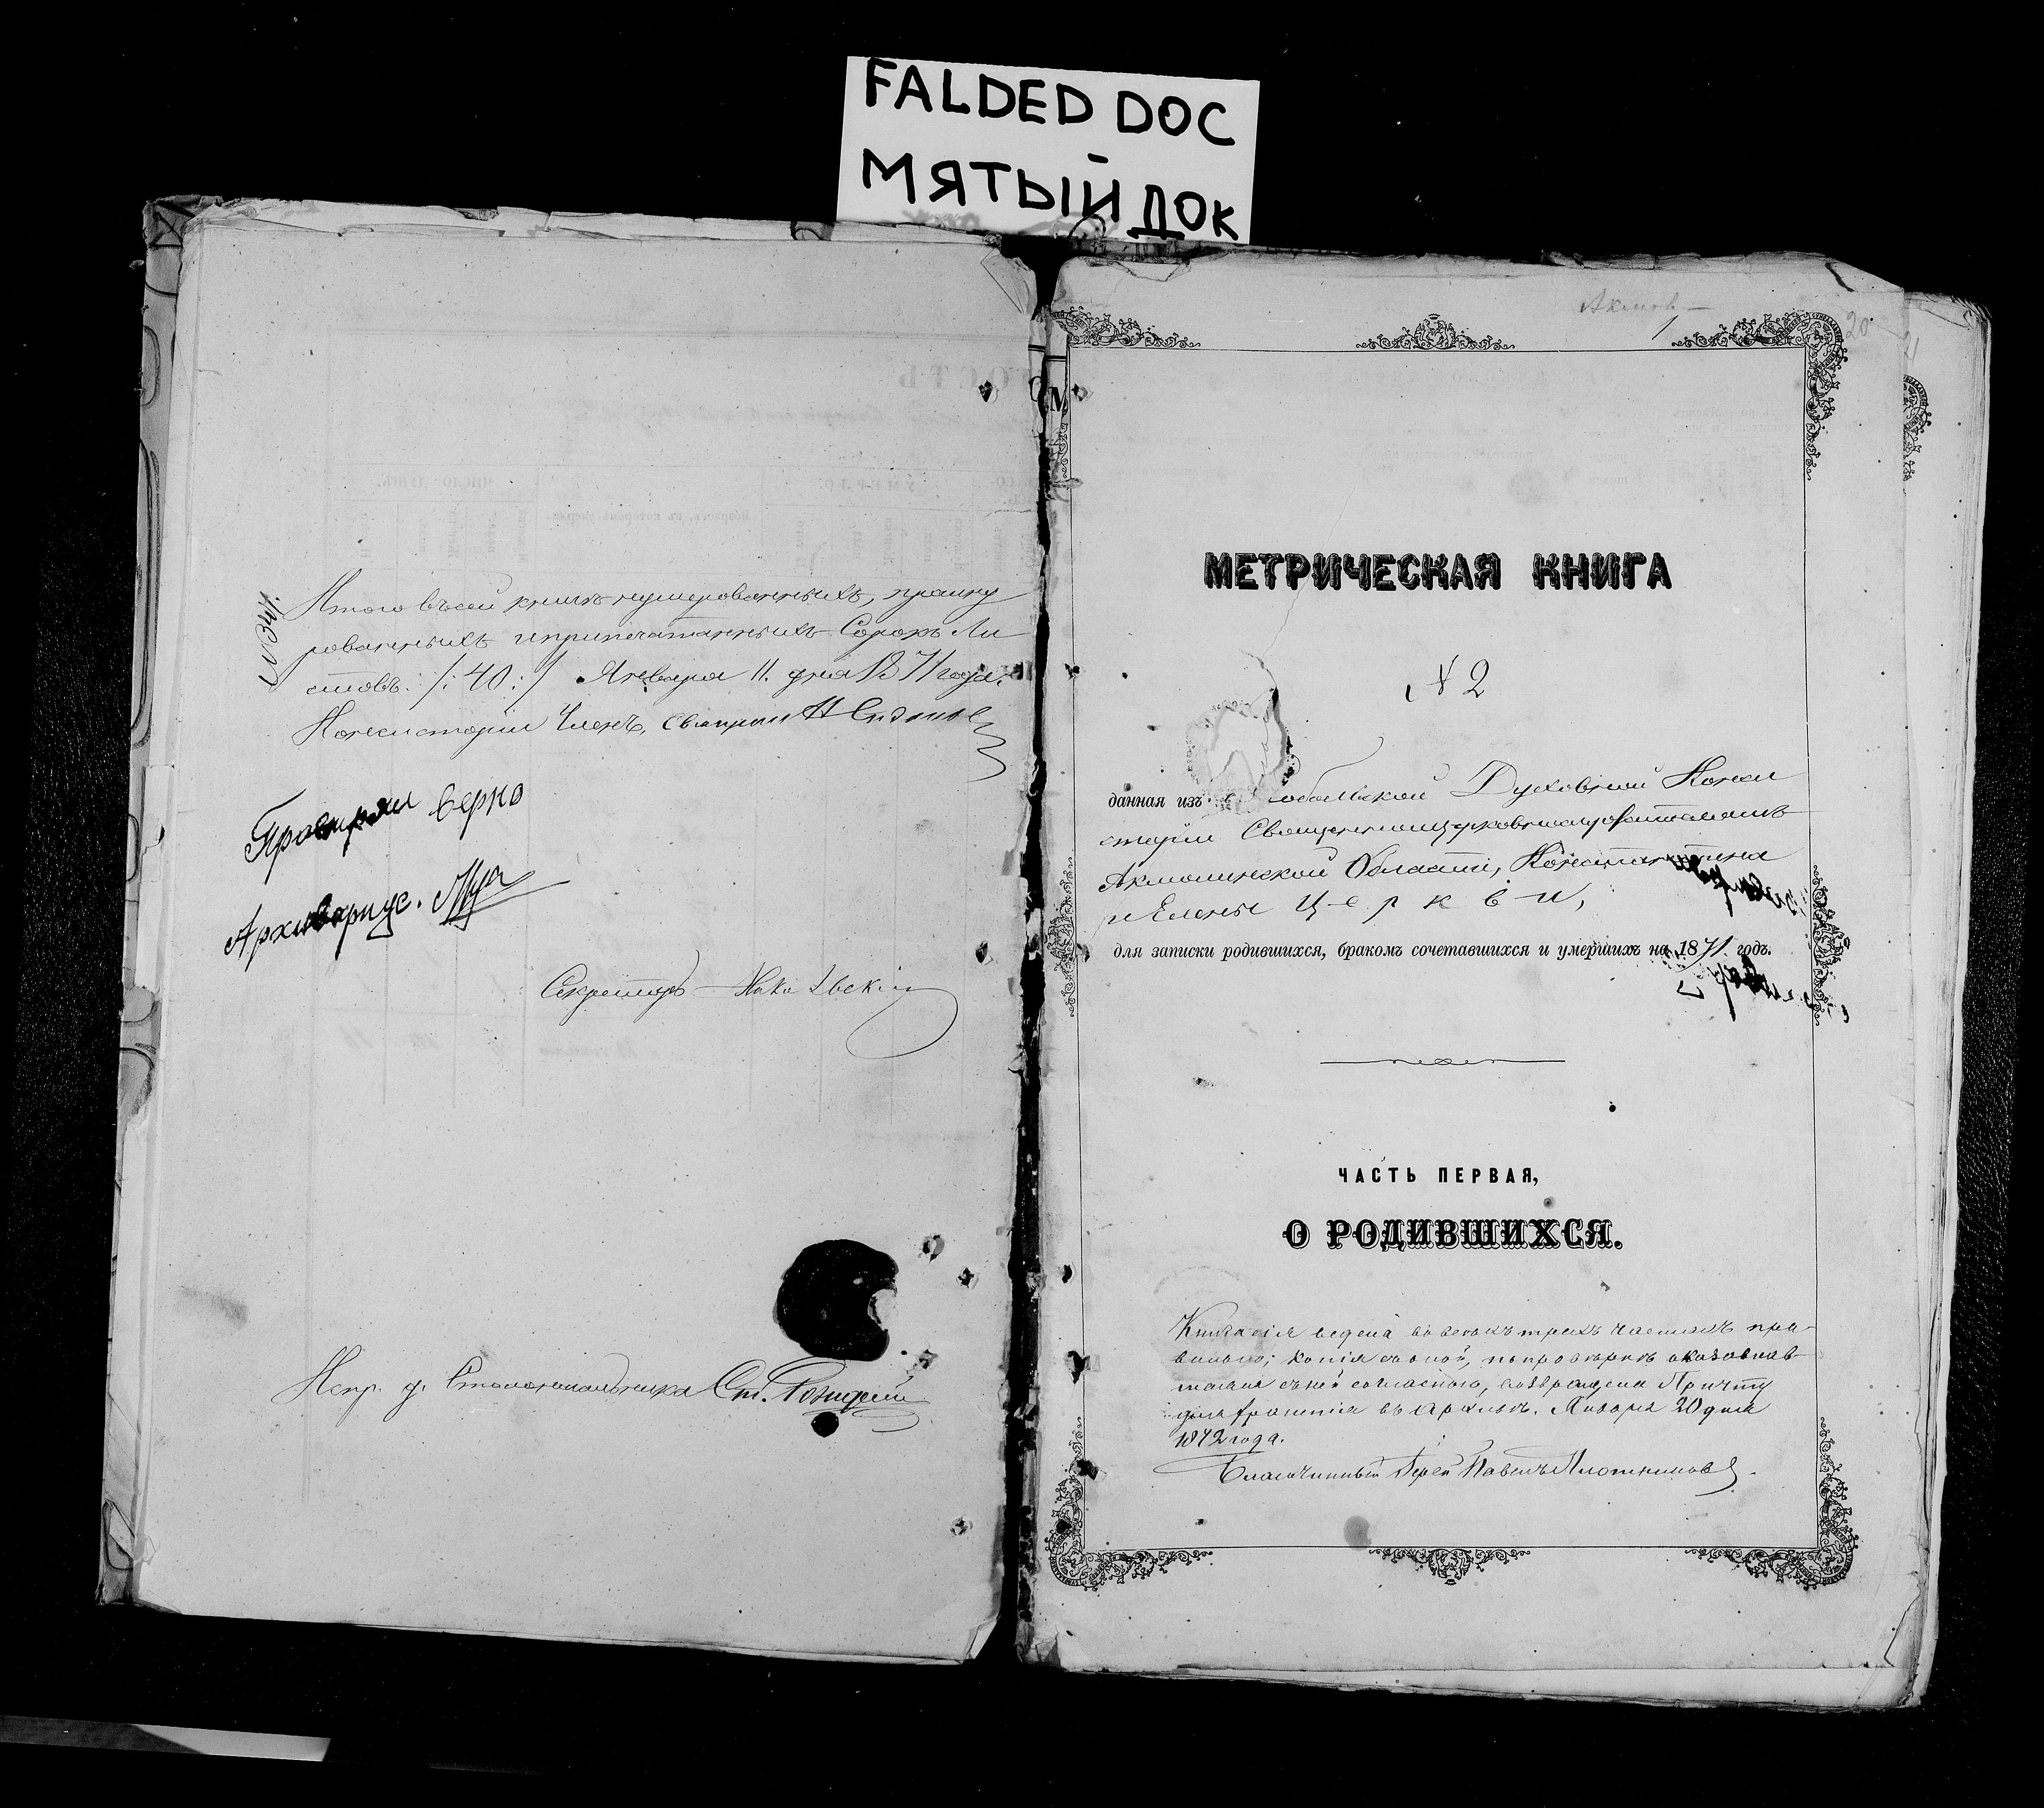 FALDED DOC
МЯТЫЙ ДОК
№ 341.
Итого въ сей книгѣ нумерованныхъ, прошну
рованныхъ и припечатанныхъ Сорокъ Ли
стовъ. /:40:/ Января 11. дня 1871 года.
Консисторіи Членъ, Священ
Проверял верно
Архивариус.
Секретарь
Испр. д. Столоначальника
1
20
МЕТРИЧЕСКАЯ КНИГА
№ 2
данная изъ Тобольской Духовной Конси
сторіи Священноцерковнослужителямъ
Акмолинской Области, Константина
и Елены Церкви,
для записки родившихся, бракомъ сочетавшихся и умершихъ на 1871 годъ.
ЧАСТЬ ПЕРВАЯ,
О РОДИВШИХСЯ.
Книга сія ведена во всѣхъ трехъ частяхъ пра-
вильно; копія съ оной, по провѣркѣ оказавшая
съ ней согласною, возвращена Причту
для храненія въ Архивѣ. Января 20 дня
1872 года.
Благочинный Іерей Павелъ Плотниковъ.